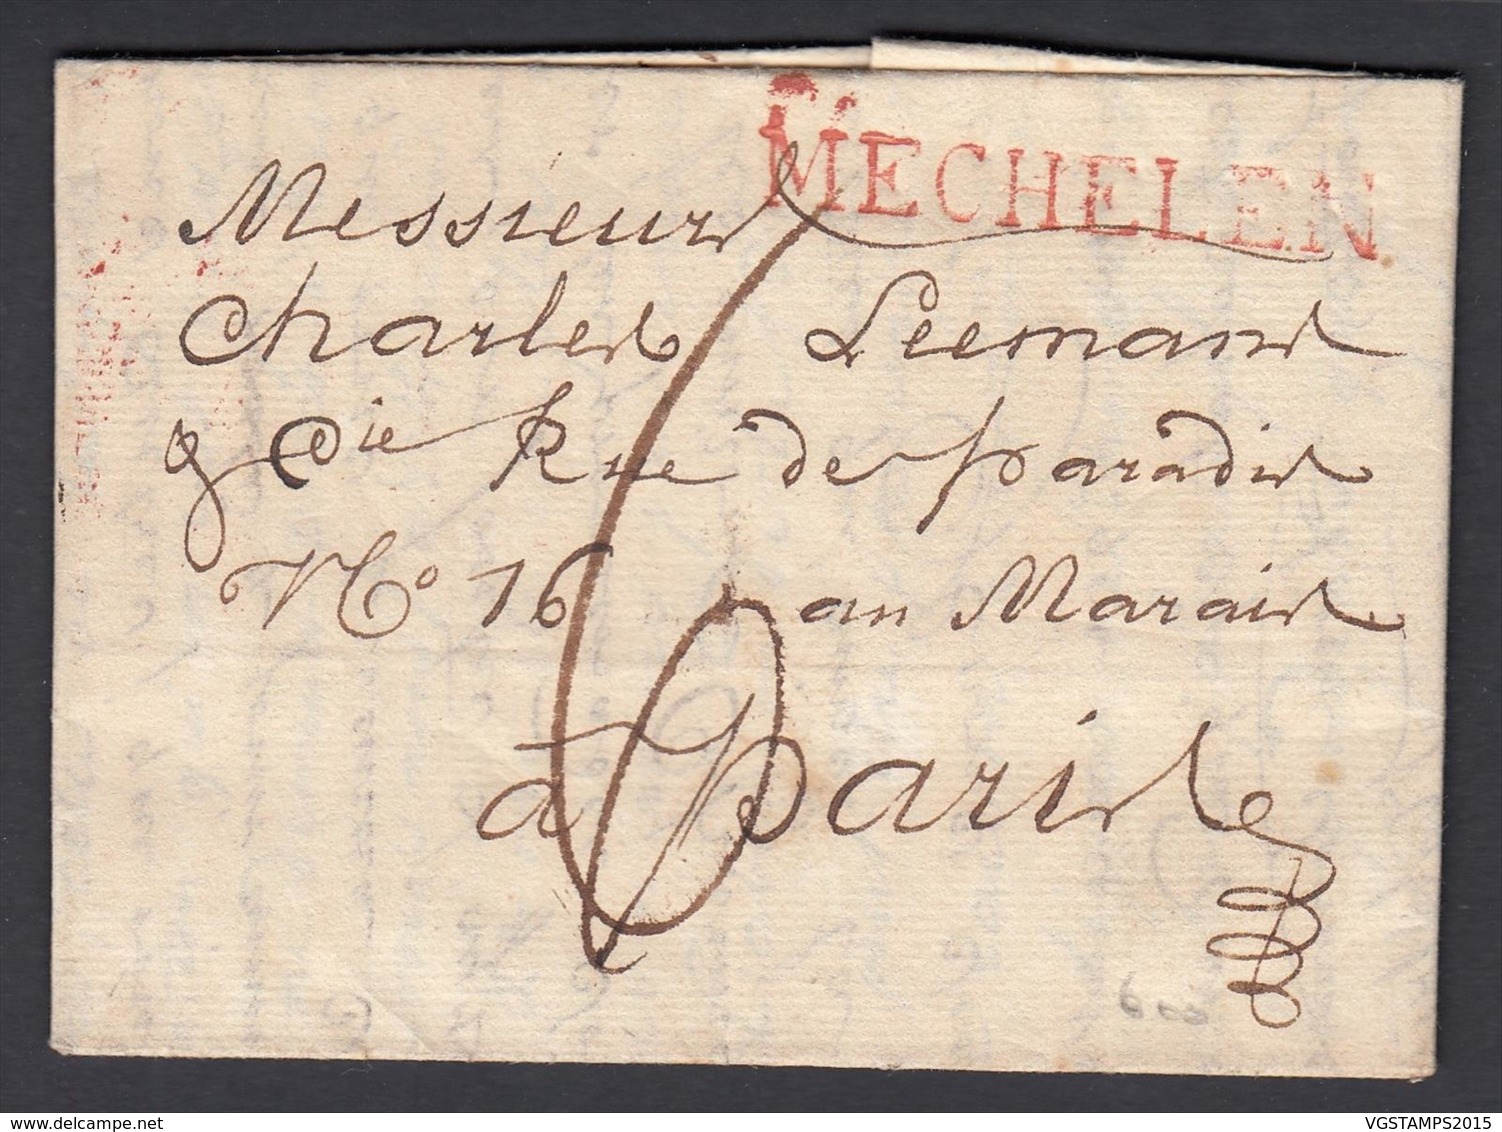 MECHELEN
Messieurs
Charles Leemans
& Cie Rue de paradis
No. 16 au Marais
à Paris
6
delcampe.net
VGSTAMPS2015